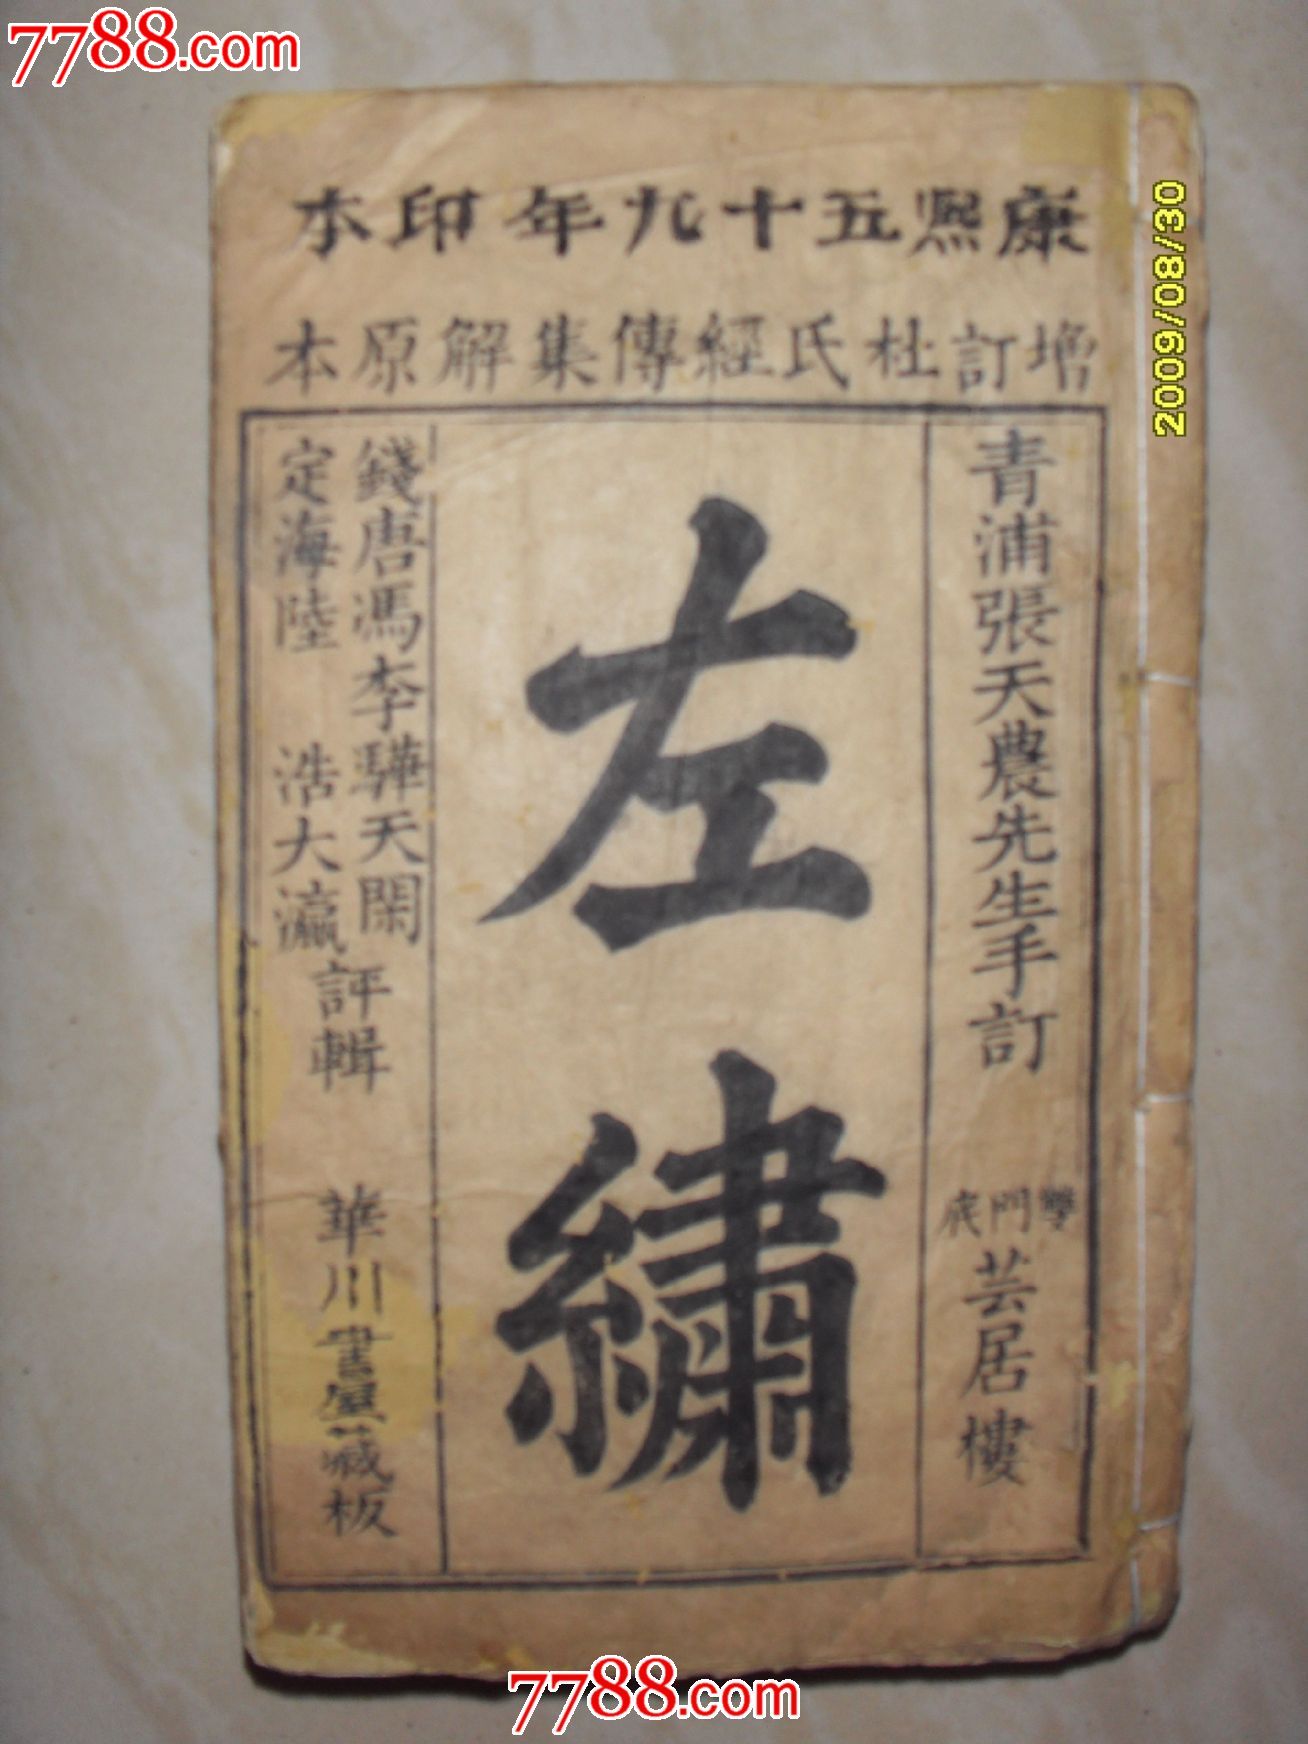 7788.com
康熙五十九年印本
增訂杜氏經傳集解原本
青浦張天農先生手訂
門
芸居樓
左繡
錢唐馮李驊天閑
定海陸浩大瀛
評輯
華川書屋藏板
2009/08/30
7788.com